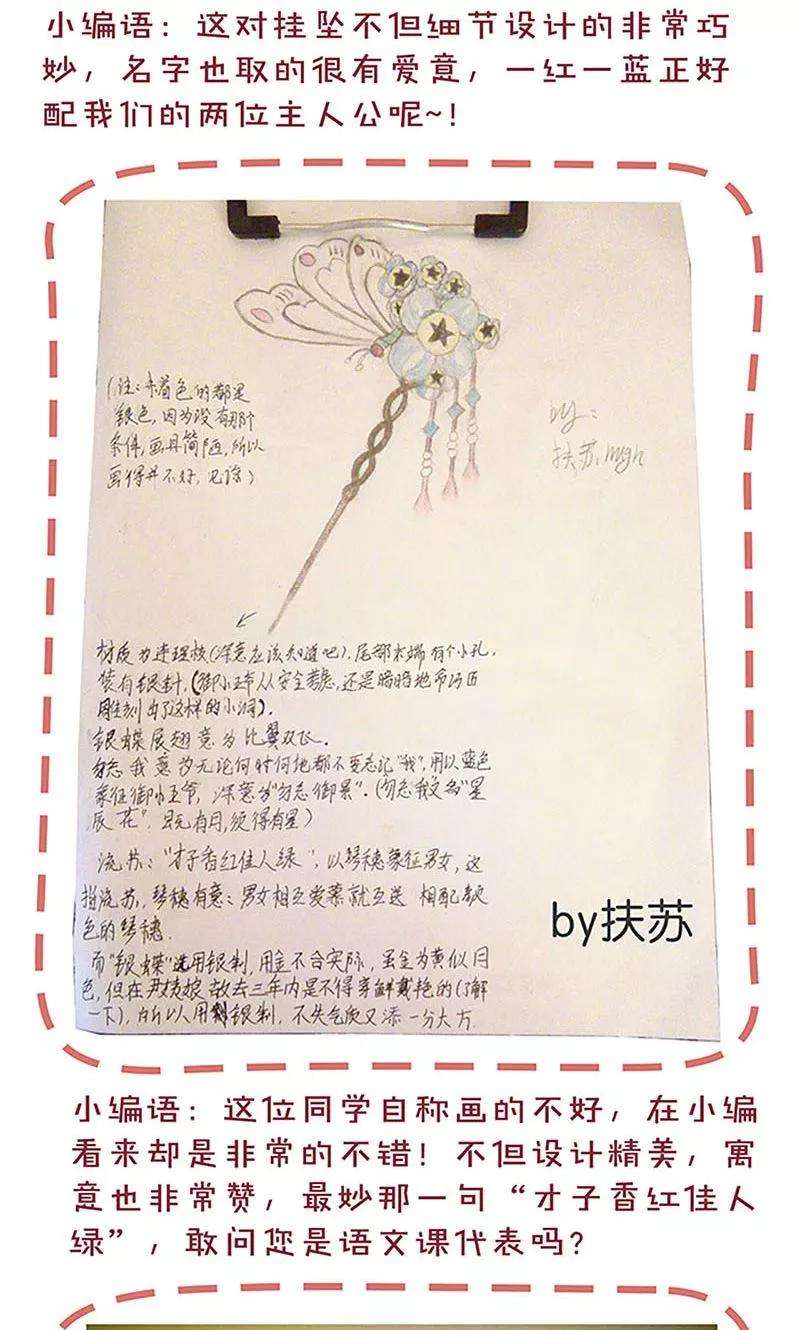 小编语：这对挂坠不但细节设计的非常巧
妙，名字也取的很有爱意，一红一蓝正好
配我们的两位主人公呢~！
（注：未着色的都是
银色，因为没有那个
条件，画具简陋，所以
画得并不好，见谅）
by：
扶苏
材质为连理枝（深意应该知道吧），尾部末端有个小孔，
装有银针，（御小王爷从安全考虑，还是暗暗地命巧匠
雕刻出了这样的小洞）．
银蝶展翅意为比翼双飞．
勿忘我意为无论何时何地都不要忘记“我”，用以蓝色
象征御小王爷，深意为“勿忘御景”．（勿忘我又名“星
辰花”，既有月，须得有星）
流苏：“才子香红佳人绿”，以琴穗象征男女，这
指流苏，琴穗有意：男女相互爱慕就互送 相配颜
色的琴穗．
而“银蝶”选用银制，用金不合实际，虽金为黄似月
色，但在尹姑娘故去三年内是不得穿鲜戴艳的（了解
一下），所以用银制，不失气质又添一分大方．
by扶苏
小编语：这位同学自称画的不好，在小编
看来却是非常的不错！不但设计精美，寓
意也非常赞，最妙那一句“才子香红佳人
绿”，敢问您是语文课代表吗？